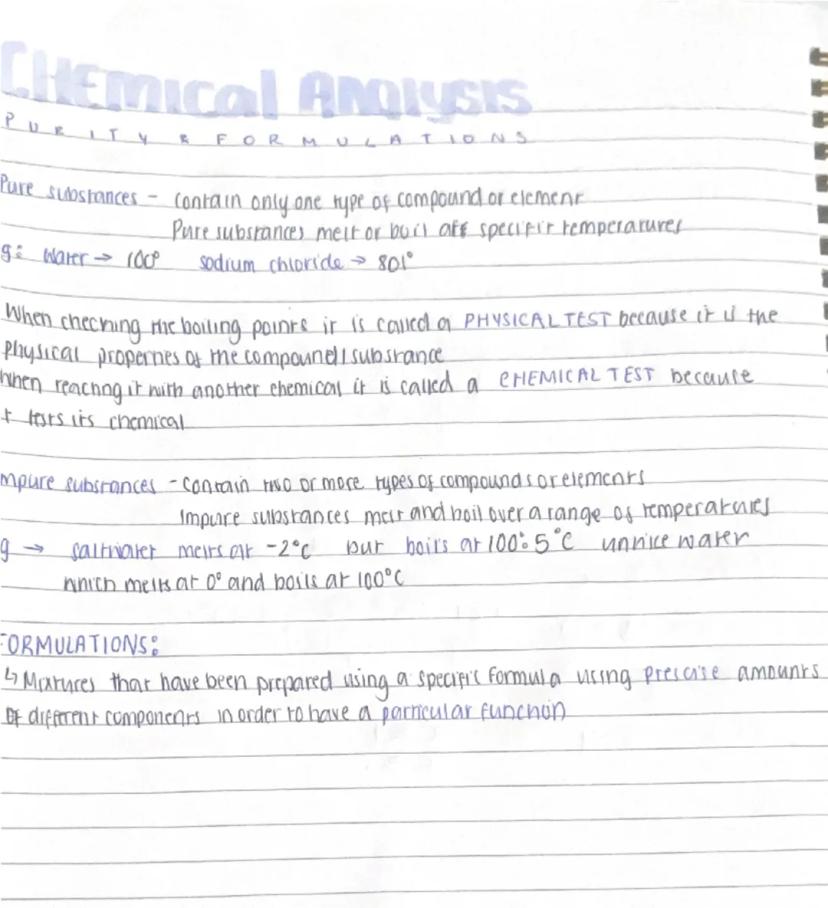 CHEMICAL ANALYSIS
PURITY & FORMULATIONS
Pure substances - contain only one type of compound or element
Pure substances melt or boil att specific temperatures
g: Water → 100° sodium chloride → 801°
When checking the boiling points it is called a PHYSICAL TEST because it is the
physical properties of the compound/substance
when reacting it with another chemical it is called a CHEMICAL TEST because
t tests its chemical
mpure substances - contain two or more types of compounds or elements
Impure substances melt and boil over a range of temperatures
g → saltwater melts at -2°C but boils at 100.5°C unlike water
which melts at 0° and boils at 100°C
FORMULATIONS:
↳ Mixtures that have been prepared using a specific formula using prescise amounts
of different components in order to have a particular function